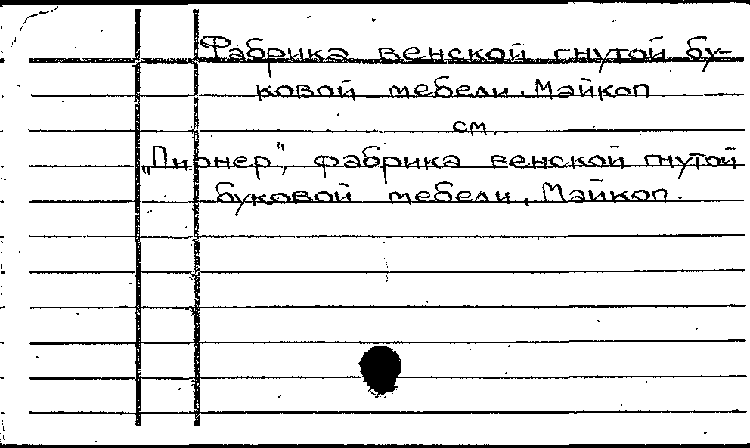 Фабрика венской гнутой бу-
ковой мебели. Майкоп
см.
„Пионер", фабрика венской гнутой
буковой мебели, Майкоп.